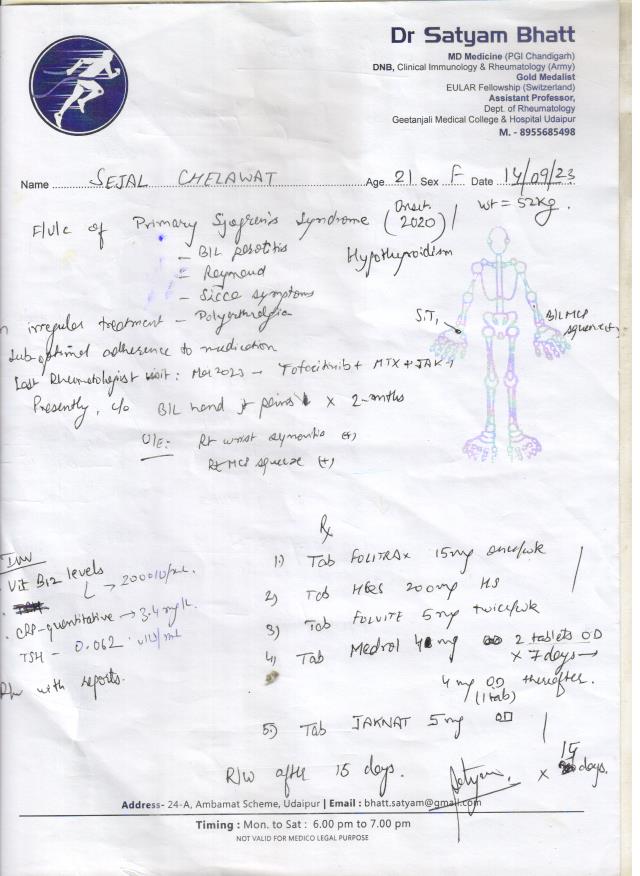 Dr Satyam Bhatt
MD Medicine (PGI Chandigarh)
DNB, Clinical Immunology & Rheumatology (Army)
Gold Medalist
EULAR Fellowship (Switzerland)
Assistant Professor,
Dept. of Rheumatology
Geetanjali Medical College & Hospital Udaipur
M. - 8955685498
Name SEJAL CHELAWAT Age 21 Sex F Date 14/09/23
F/U/c of Primary Sjogren's Syndrome (Onset 2020) wt = 52kg.
- B/L parotitis Hypothyroidism
- Raynaud
- Sicca symptoms
irregular treatment - Polyarthralgia
Sub optimal adherence to medication
S.T,
B/L MCP squeeze +
Last Rheumatologist visit: Mar 2023 - Tofacitinib + MTX + JAK
Presently, c/o B/L hand jt pains x 2 months
O/E: Rt wrist synovitis (+)
Rt MCP squeeze (+)
Inv
Vit B12 levels
→ 2000 IU/mL.
CRP-quantitative → 3.4 mg/L.
TSH - 0.062 uIU/mL
R/w with reports.
Rx
1) Tab FOLITRAX 15mg once/wk
2) Tab HCQS 200mg HS
3) Tab FOLVITE 5mg twice/wk
4) Tab Medrol 4 mg 2 tablets OD
x 7 days →
4 mg OD thereafter.
(1 tab)
5) Tab JAKNAT 5mg OD
R/W after 15 days. Satyam x 15 days.
Address- 24-A, Ambamat Scheme, Udaipur | Email : bhatt.satyam@gmail.com
Timing : Mon. to Sat : 6.00 pm to 7.00 pm
NOT VALID FOR MEDICO LEGAL PURPOSE